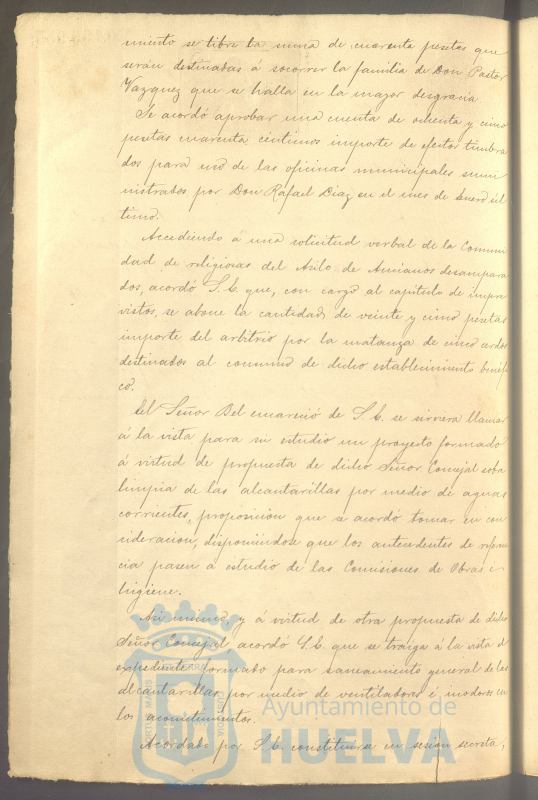 miento se libre la suma de cuarenta pesetas que
serán destinadas á socorrer la familia de Don Pastor
Vazquez que se halla en la mayor desgracia.
Se acordó aprobar una cuenta de ochenta y cinco
pesetas cuarenta céntimos importe de efectos timbra
dos para uso de las oficinas municipales sumi
nistrados por Don Rafael Diaz en el mes de Enero úl
timo.
Accediendo á una solicitud verbal de la Comuni
dad de religiosas del Asilo de Ancianos desampara
dos, acordó S.E. que, con cargo al capítulo de impre
vistos, se abone la cantidad de veinte y cinco pesetas
importe del arbitrio por la matanza de cinco cerdos
destinados al consumo de dicho establecimiento benéfi
co.
El Señor Bel encareció de S.E. se sirviera llamar
á la vista para su estudio un proyecto formado
á virtud de propuesta de dicho Señor Concejal sobre
limpia de las alcantarillas por medio de aguas
corrientes, proposición que se acordó tomar en con
sideracion, disponiéndose que los antecedentes de referen
cia pasen á estudio de las Comisiones de Obras é
higiene.
Asi mismo, y á virtud de otra propuesta de dicho
Señor Concejal, acordó S.E. que se traiga á la vista el
expediente formado para saneamiento general de las
alcantarillas por medio de ventiladores é inodoros en
los acometimientos.
Acordado por S.E. constituirse en sesión secreta,
Ayuntamiento de
HUELVA